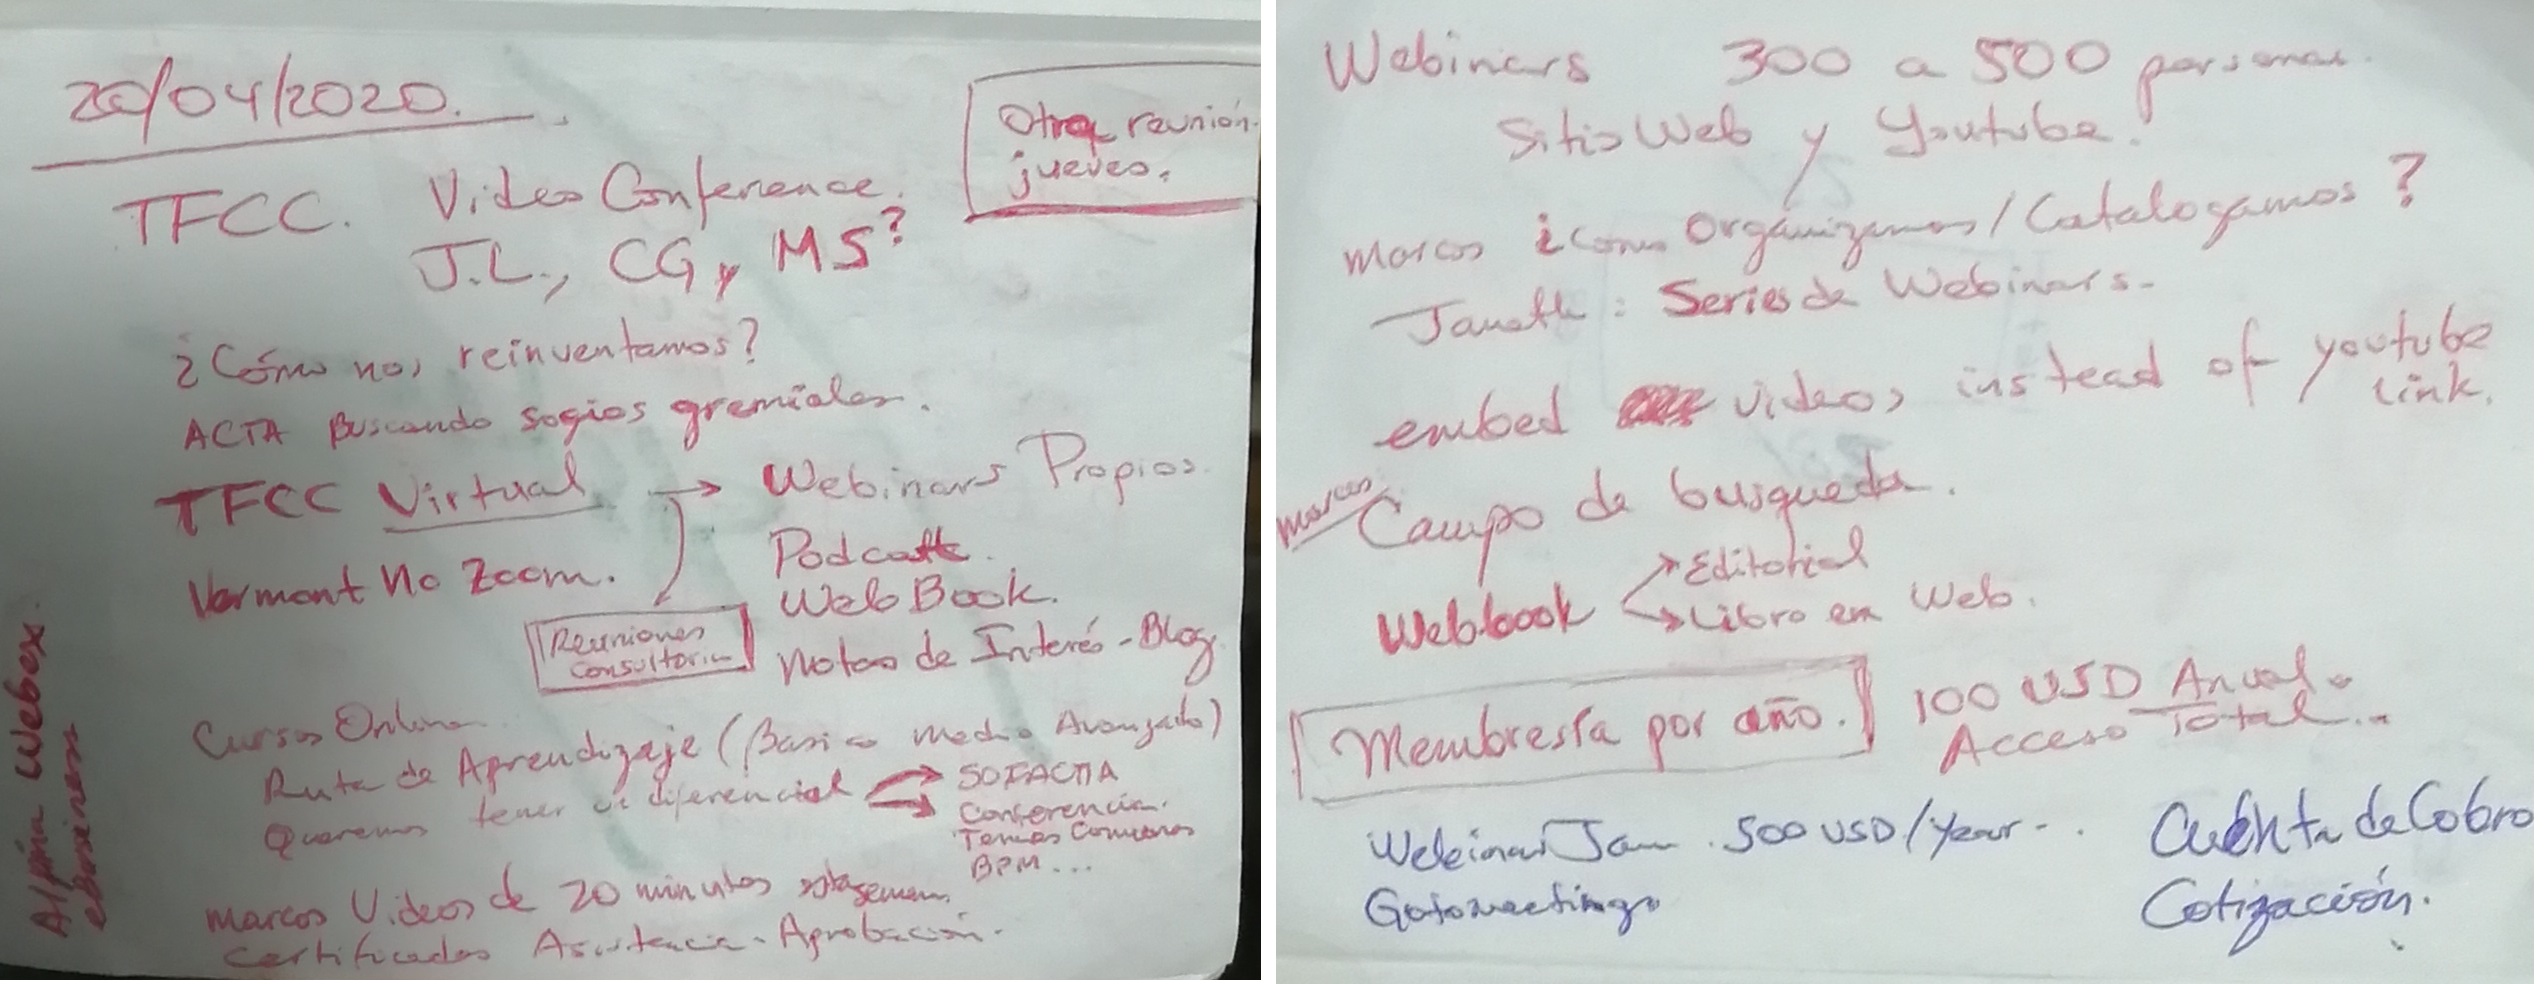 20/04/2020.
Otra reunión
jueves.
TFCC. Video Conference.
J.L., CG y MS?
¿Cómo nos reinventamos?
ACTA Buscando sogios gremiales.
TFCC Virtual → Webinars Propios.
Podcast.
Vermont No Zoom.
WebBook.
Reuniones
Consultoría
Notas de Interés - Blog
Cursos Online
Ruta de Aprendizaje (Basico Medio Avanzado)
Queremos tener diferencial
SOFACTIA
Conferencia.
Temas Comunes
BPM...
Marcos Videos de 20 minutos
Certificados Asistencia - Aprobación.
Alpina Webex.
Webinars 300 a 500 personas.
Sitio Web y Youtube.
Marcos ¿Como Organizamos/Catalogamos?
Janeth: Series de Webinars.
embed videos instead of youtube
link.
Marcos
Campo de busqueda.
Webbook
Editorial
Libro en Web.
Membresía por año.
100 USD Anual.
Acceso Total...
Webinar Jam. 500 USD/year..
Cuenta de Cobro
Gotomeeting
Cotización.